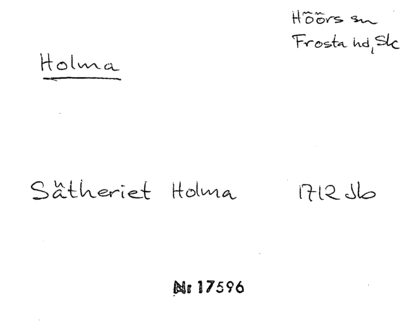 Höörs sn
Frosta hd, Sk
Holma
Sätheriet Holma 1712 Jb
Nr 17596